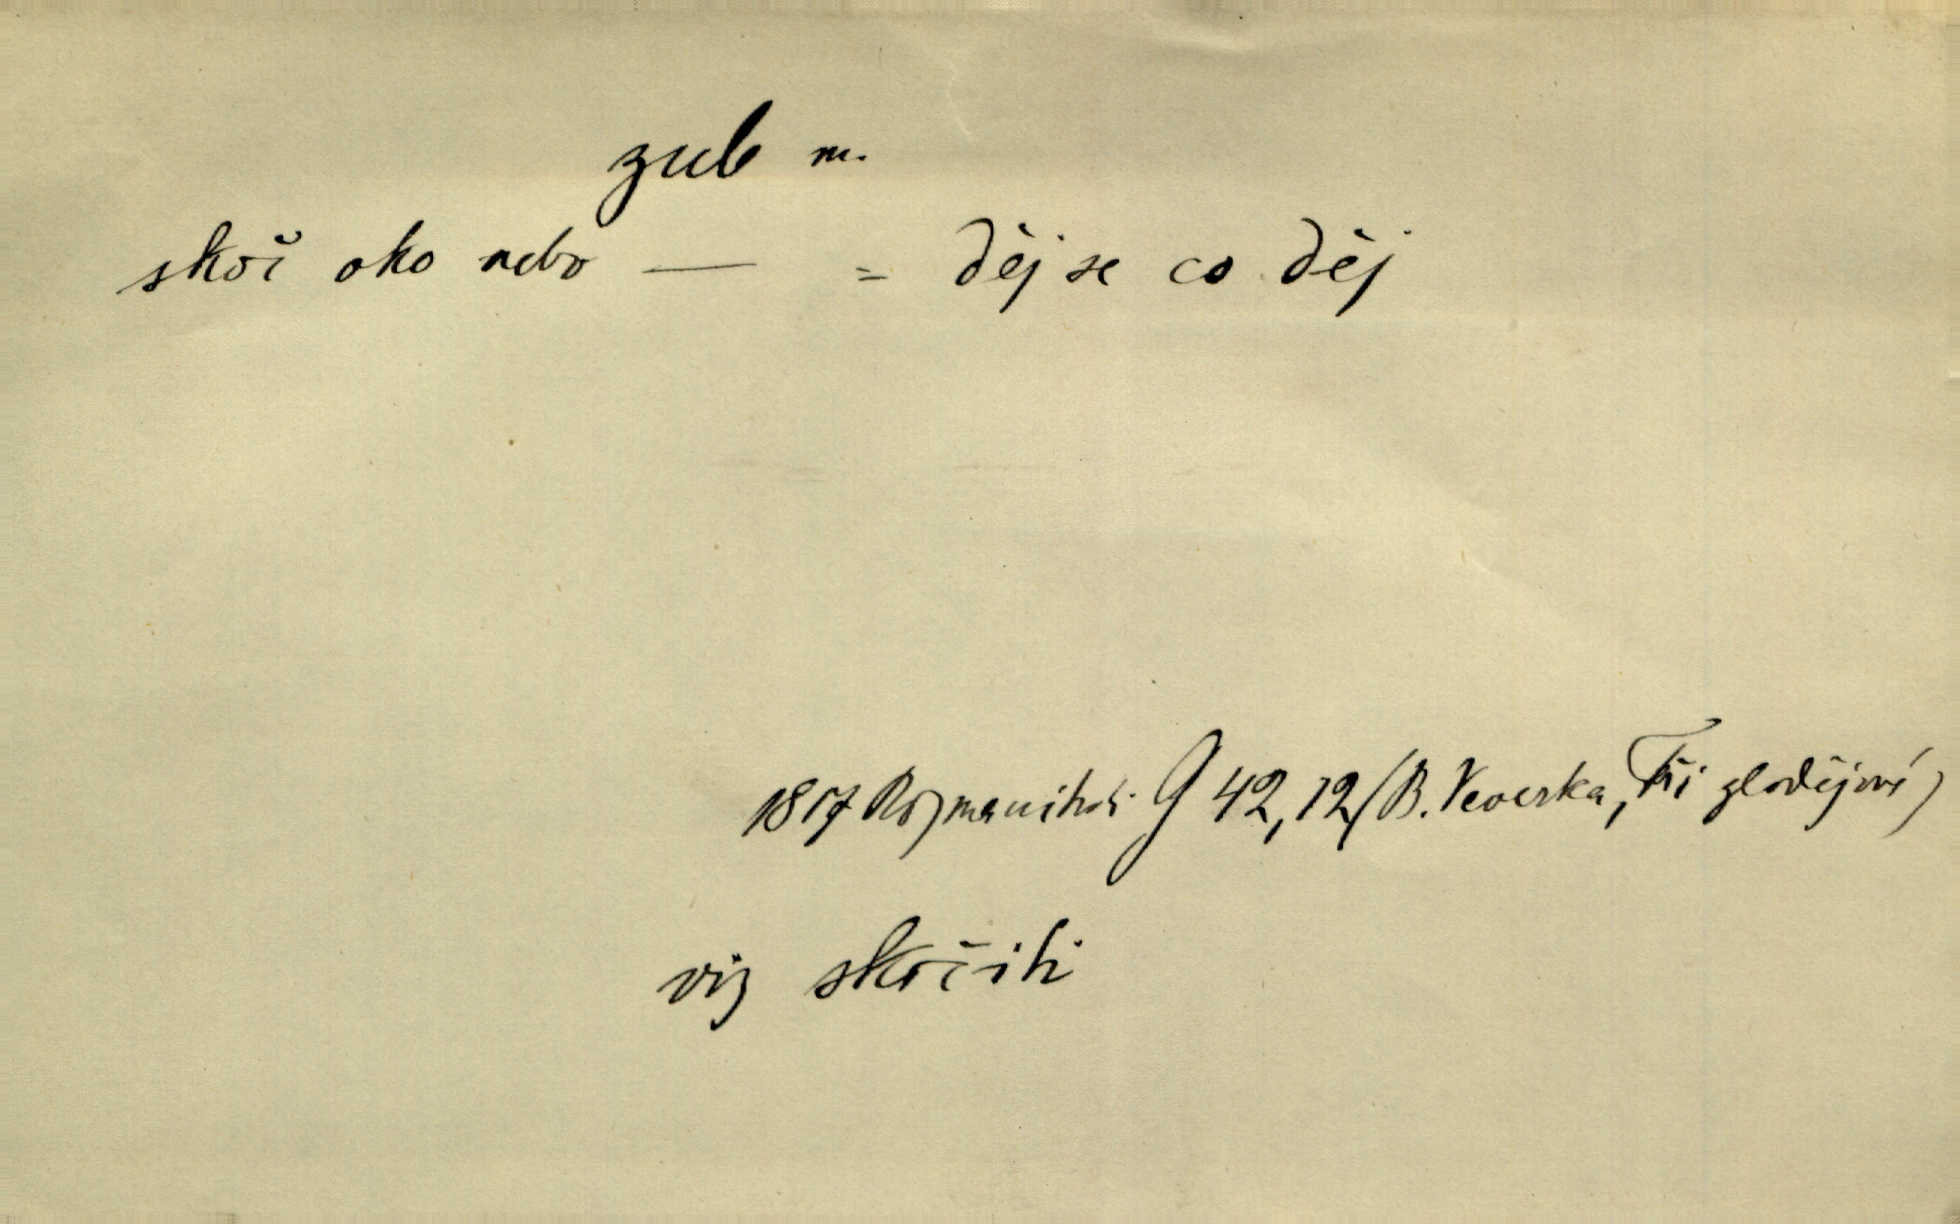 zub m.
skoč oko nebo — = děj se co děj
1817 Rozmanitosti 9 42, 12 (B. Veverka, Tři zlodějové)
viz skočiti